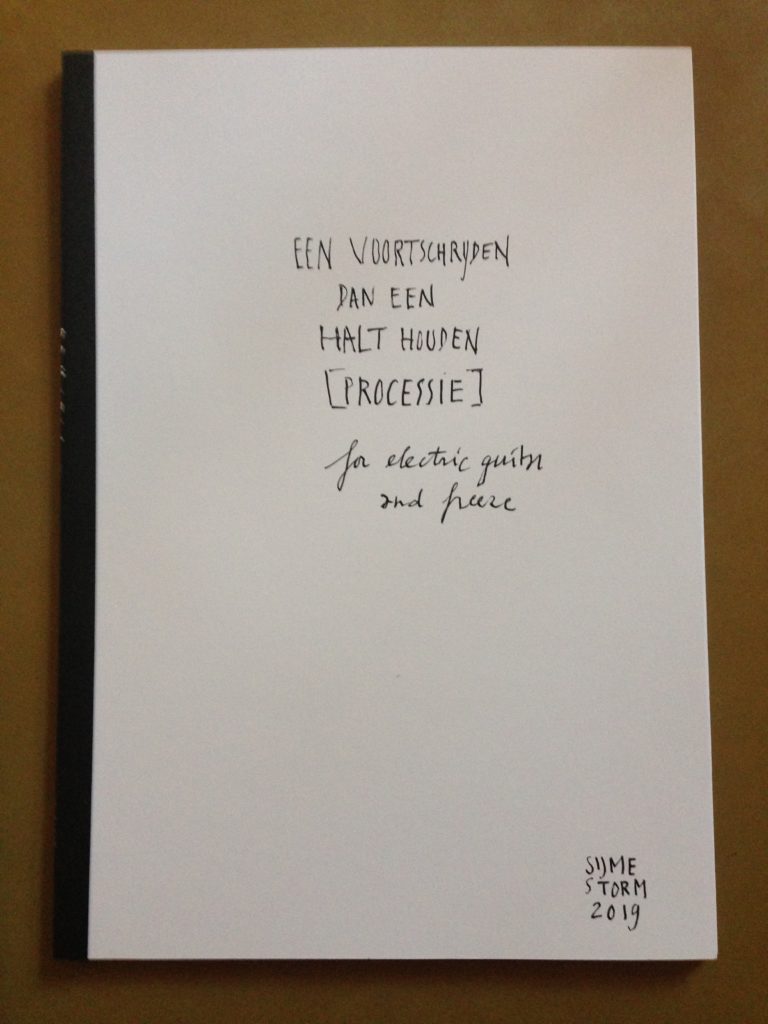 EEN VOORTSCHRYDEN
DAN EEN
HALT HOUDEN
[PROCESSIE]
for electric guitar
and freeze
SIJME
STORM
2019